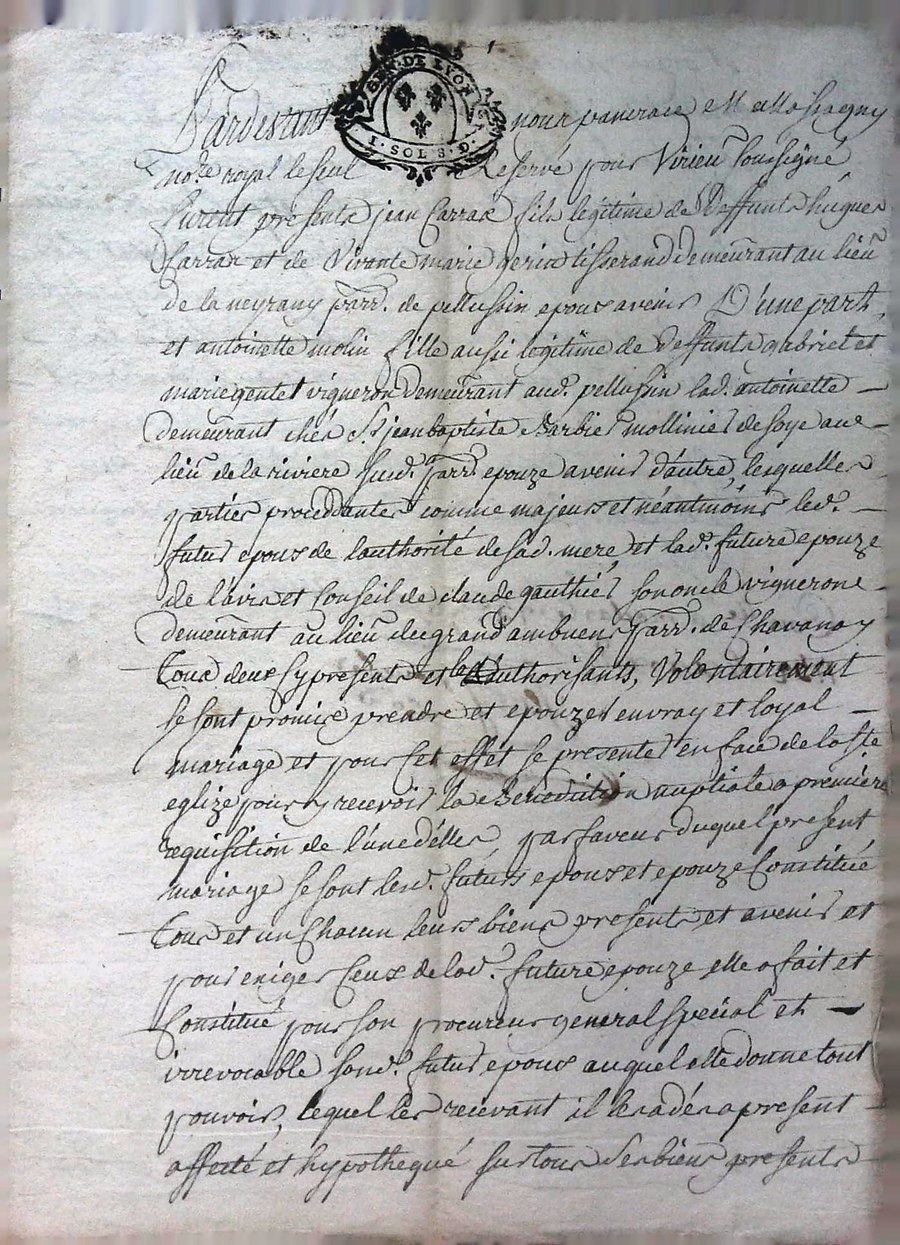 GEN. DE LYON
I. SOL 8. D.
Pardevant nous pancrace
no.re royal le seul Reservé pour Virieu soussigné
furent presents jean Carrax fils legitime de deffunts hugues
Carrax et de Vivante marie tisserand demeurant au lieu
de la neyrany parr. de pellussin epoux avenir D'une part,
et antoinette molin fille aussi legitime de deffunts gabriel et
marie gentet vigneron demeurant aud. pellussin lad. antoinette
demeurant chés S.r jean baptiste Barbier mollinier de soye au
lieu de la riviere susd. parr. epouze avenir d'autre, lesquelles
parties proceddantes comme majeurs et néantmoins led.
futur epoux de l'authorité de sad. mere, et lad. future epouze
de l'avis et Conseil de claude gauthier son oncle vigneron
demeurant au lieu du grand ambuent parr. de Chavanay
Tous deux cy presents et les authorisants, Volontairement
se sont promis prendre et epouzer en vray et loyal
mariage et pour Cet effet se presenter en face de la s.te
eglize pour y recevoir la Benediction nuptiale a premiere
requisition de l'une d'elles, par faveur duquel present
mariage se sont lesd. futurs epoux et epouze Constitué
Tous et un Chacun leurs biens presents et avenir et
pour exiger Ceux de lad. future epouze elle a fait et
Constitué pour son procureur general spécial et
irrevocable sond. futur epoux auquel elle donne tout
pouvoir, lequel les recevant il les a dés a present
affecté et hypothequé sur tous ses biens presents